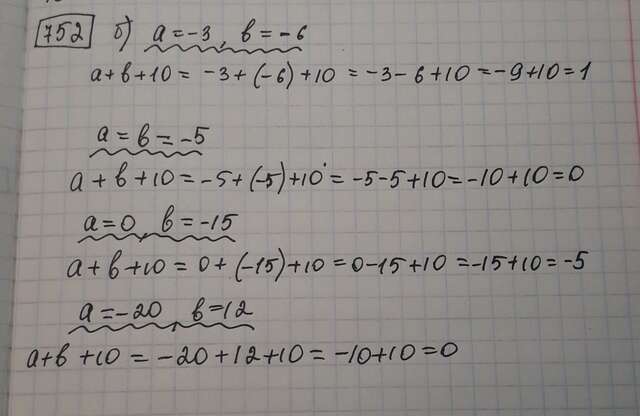 752 б) a = -3, b = -6
a + b + 10 = -3 + (-6) + 10 = -3 - 6 + 10 = -9 + 10 = 1
a = b = -5
a + b + 10 = -5 + (-5) + 10 = -5 - 5 + 10 = -10 + 10 = 0
a = 0, b = -15
a + b + 10 = 0 + (-15) + 10 = 0 - 15 + 10 = -15 + 10 = -5
a = -20, b = 12
a + b + 10 = -20 + 12 + 10 = -10 + 10 = 0